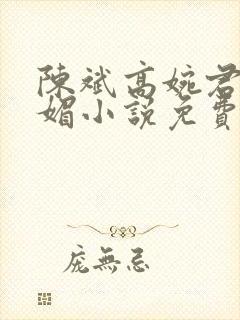 陳斌高婉君
媚小說免費
龐無忌